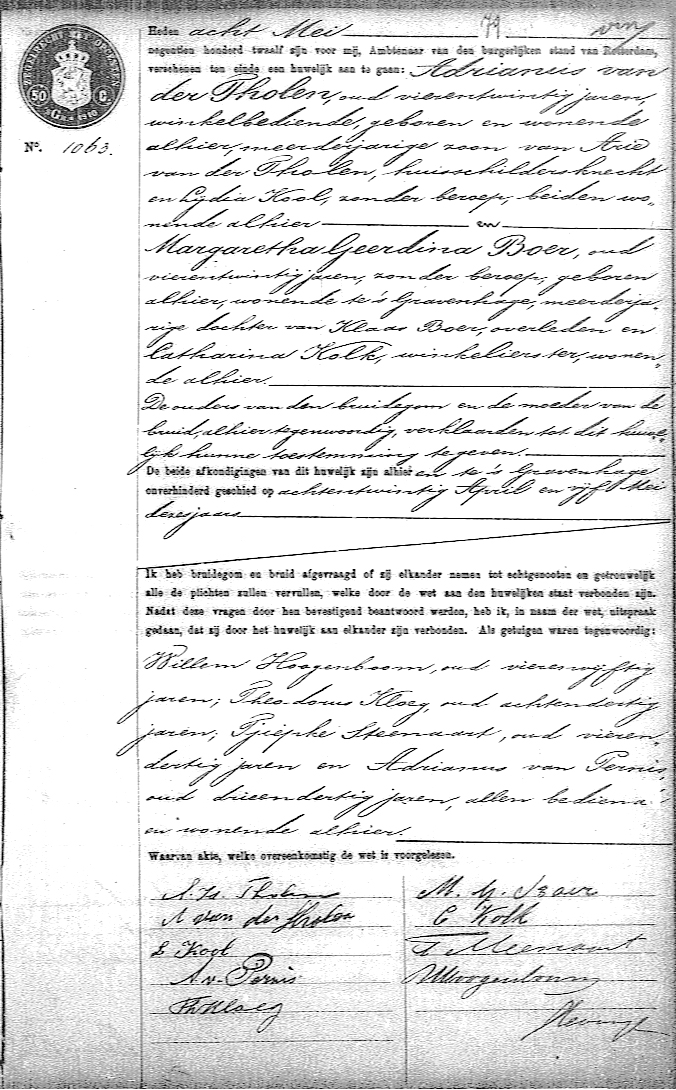 Heden acht Mei
negentien honderd twaalf zijn voor mij, Ambtenaar van den burgerlijken stand van Rotterdam,
verschenen ten einde een huwelijk aan te gaan: Adrianus van
der Tholen, oud vierentwintig jaren,
winkelbediende, geboren en wonende
alhier, meerderjarige zoon van Arie
N°. 1063.
van der Tholen, huisschildersknecht
en Lydia Kool, zonder beroep, beiden wo„
nende alhier en
Margaretha Geerdina Boer, oud
vierentwintig jaren, zonder beroep, geboren
alhier, wonende te 's Gravenhage, meerderja„
rige dochter van Klaas Boer, overleden en
Catharina Kolk, winkelierster, wonen„
de alhier.
De ouders van den bruidegom en de moeder van de
bruid, alhier tegenwoordig, verklaarden tot dit huwe„
lijk hunne toestemming te geven.
De beide afkondigingen van dit huwelijk zijn alhier en te 's Gravenhage
onverhinderd geschied op achtentwintig April en vijf Mei
dezes jaars
Ik heb bruidegom en bruid afgevraagd of zij elkander nemen tot echtgenooten en getrouwelijk
alle de plichten zullen vervullen, welke door de wet aan den huwelijken staat verbonden zijn.
Nadat deze vragen door hen bevestigend beantwoord werden, heb ik, in naam der wet, uitspraak
gedaan, dat zij door het huwelijk aan elkander zijn verbonden. Als getuigen waren tegenwoordig:
Willem Hoogenboom, oud vierenvijftig
jaren; Theodorus Kloeg, oud achtendertig
jaren; Tjiepke Steenaart, oud vieren„
dertig jaren en Adrianus van Pernis,
oud drieendertig jaren, allen bediende
en wonende alhier.
Waarvan akte, welke overeenkomstig de wet is voorgelezen.
A. vd. Tholen
M. G. Boer
A van der Tholen
C Kolk
L Kool
A v. Pernis
WHoogenboom
ThKloeg